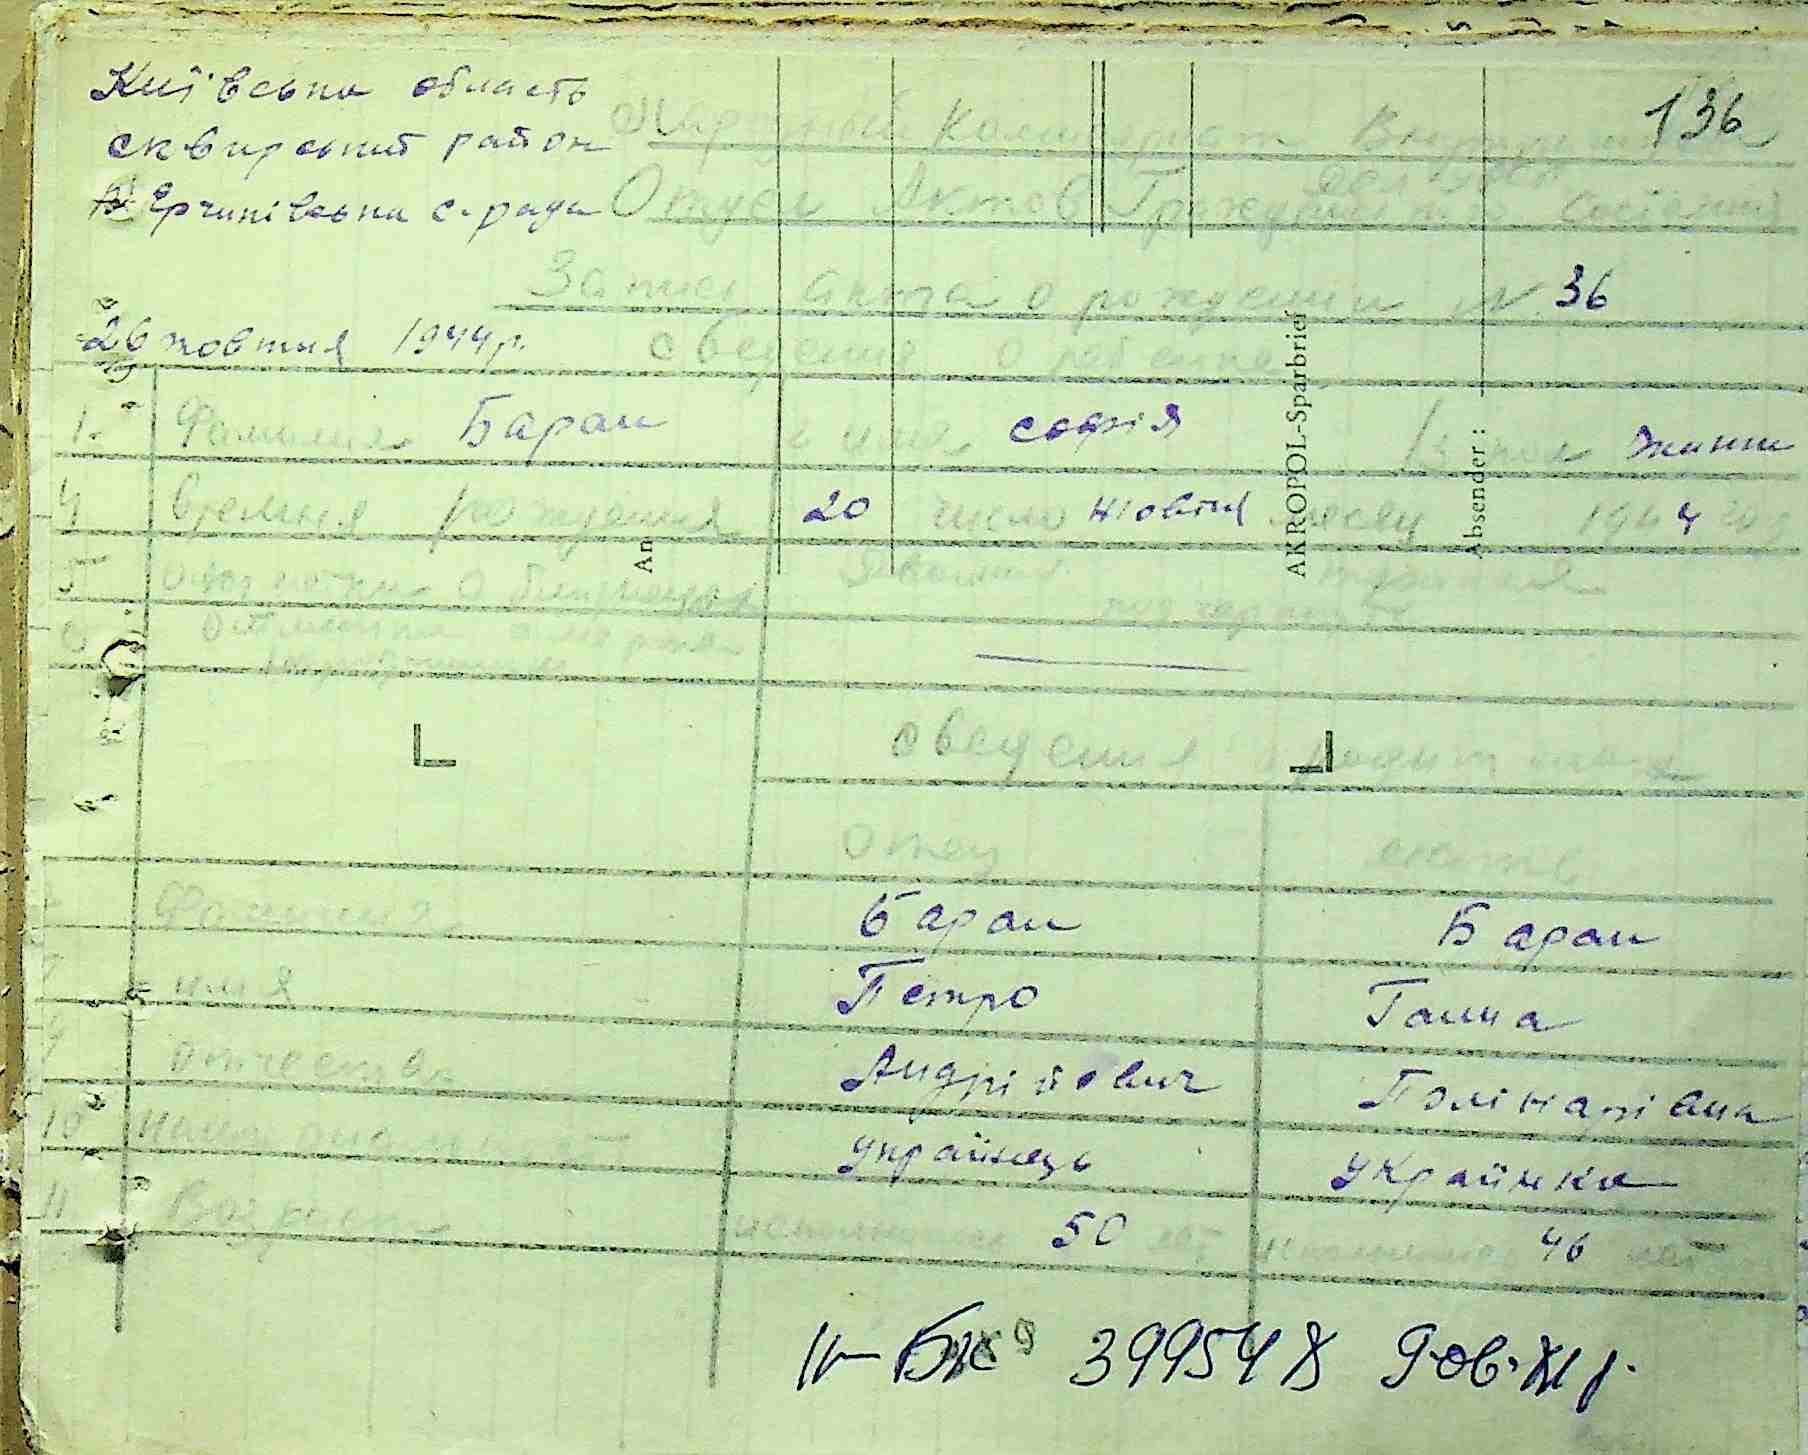 Київська область
сквирський район 136
Єрчиківська с. рада
Народный Комиссариат Внутренних
дел УССР
Отдел Актов Гражданского состояния
Запись акта о рождении № 36
26 жовтня 1944 р. сведения о ребенке
1. Фамилия Баран 2 имя софія 3 пол жіноч
4 время рождения 20 число жовтня месец 1944 год
5
6
An
AKROPOL-Sparbrief
Absender:
сведения о родителях
отец мать
Фамилия Баран Баран
имя Петро Ганна
9 отчество Андрійович Полікарпівна
10 национальность Українець Українка
11 Возраст исполнилось 50 лет исполнилось 46 лет
399548